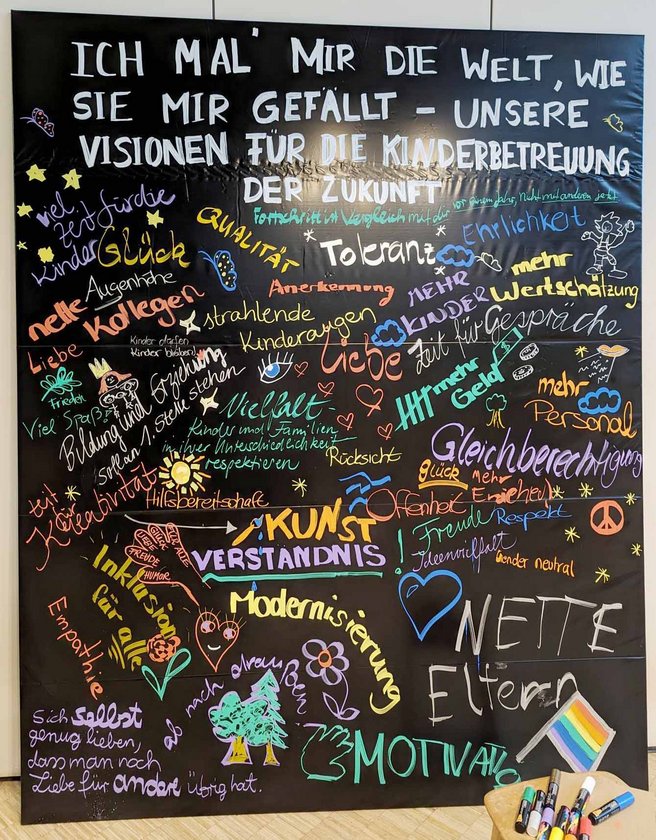 ICH MAL' MIR DIE WELT, WIE
SIE MIR GEFÄLLT – UNSERE
VISIONEN FÜR DIE KINDERBETREUUNG
DER ZUKUNFT
viel
Zeit für die
Kinder
Glück
QUALITÄT
Fortschritt im Vergleich mit dir vor einem Jahr, Nicht mit anderen jetzt
Toleranz
Ehrlichkeit
Augenhöhe
nette Kollegen
Anerkennung
MEHR
KINDER
mehr
Wertschätzung
strahlende
Kinderaugen
Zeit für Gespräche
Liebe
Kinder dürfen
Kinder bleiben!
Liebe
Frieden
Viel Spaß
Bildung und Erziehung
sollen an 1. Stelle stehen
Vielfalt -
Kinder und Familien
in ihrer Unterschiedlichkeit
respektieren
mehr
Geld
mehr
Personal
Rücksicht
Gleichberechtigung
Zeit
für
Kreativität
Hilfsbereitschaft
Glück
Mehr
Erzieher!
Offenheit
KUNST
VERSTÄNDNIS
!
Freude
Respekt
Ideenvielfalt
Gender neutral
LIEBE
FREUDE
HUMOR
Inklusion
für alle
Modernisierung
Empathie
NETTE
Eltern
ab nach draußen
Sich selbst
genug lieben,
dass man noch
Liebe für andere übrig hat.
MOTIVATIO